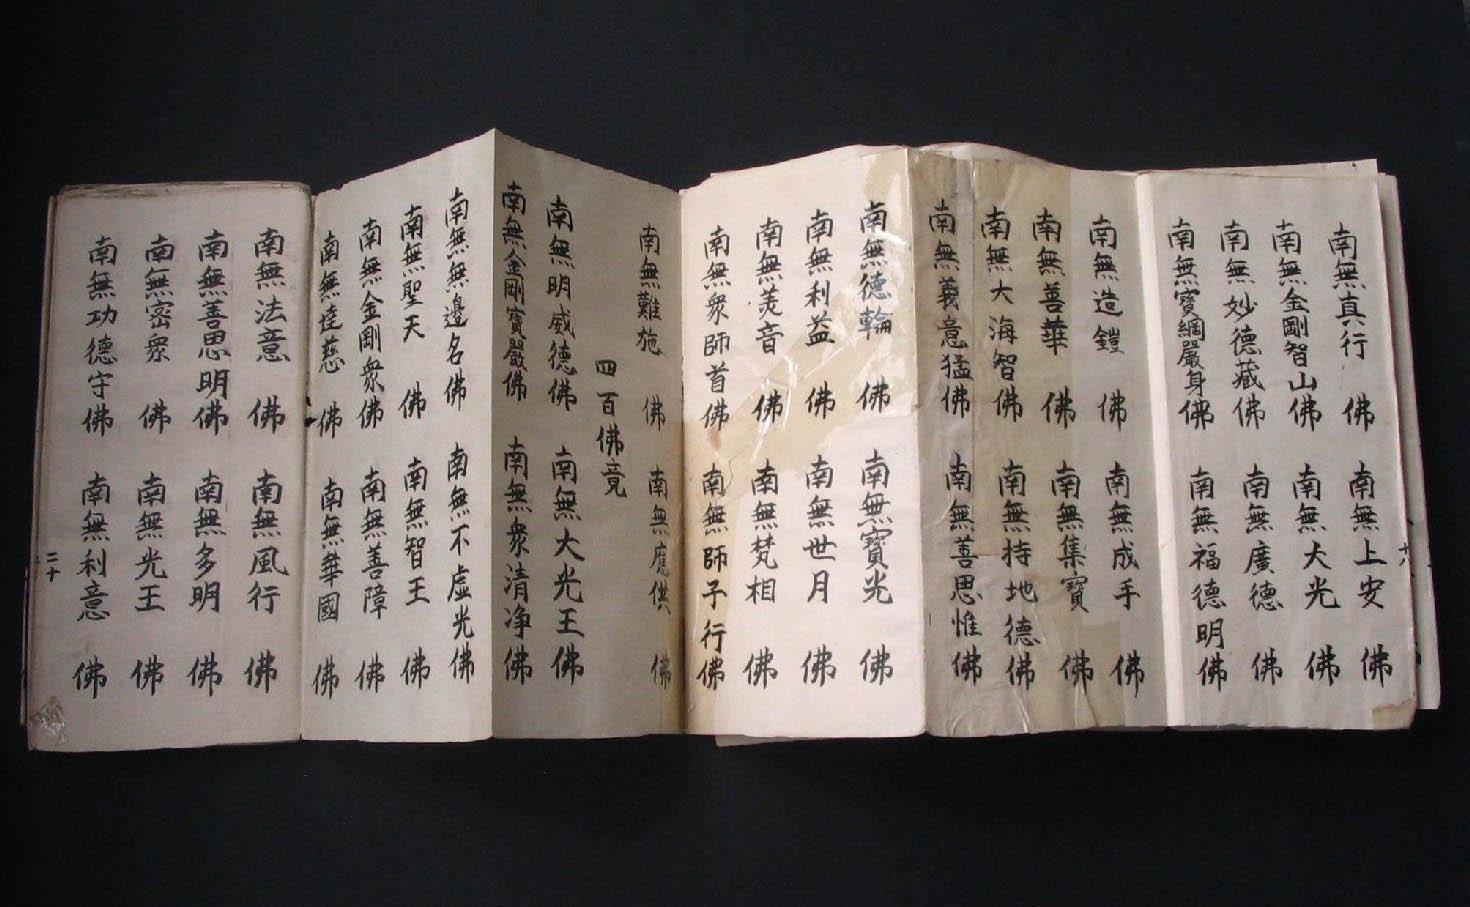 十八
南無真行佛 南無上安佛
南無金剛智山佛 南無大光佛
南無妙德藏佛 南無廣德佛
南無寶網嚴身佛 南無福德明佛
南無造鎧佛 南無成手佛
南無善華佛 南無集寶佛
南無大海智佛 南無持地德佛
南無義意猛佛 南無善思惟佛
南無德輪佛 南無寶光佛
南無利益佛 南無世月佛
南無美音佛 南無梵相佛
南無衆師首佛 南無師子行佛
南無難施佛 南無應供佛
四百佛竟
南無明威德佛 南無大光王佛
南無金剛寶嚴佛 南無衆清净佛
南無無邊名佛 南無不虛光佛
南無聖天佛 南無智王佛
南無金剛衆佛 南無善障佛
南無建慈佛 南無華國佛
南無法意佛 南無風行佛
南無善思明佛 南無多明佛
南無密衆佛 南無光王佛
南無功德守佛 南無利意佛
二十